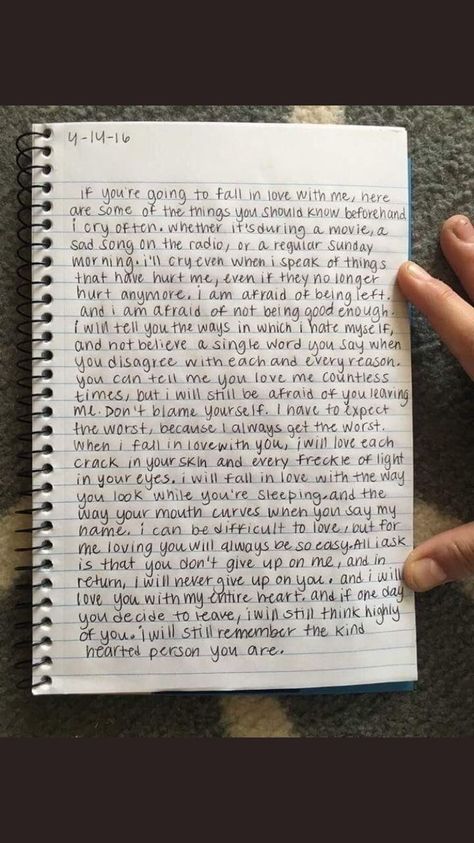 4-14-16
if you're going to fall in love with me, here
are some of the things you should know beforehand
i cry often. whether it's during a movie, a
sad song on the radio, or a regular sunday
morning. i'll cry even when i speak of things
that have hurt me, even if they no longer
hurt anymore. i am afraid of being left.
and i am afraid of not being good enough.
i will tell you the ways in which i hate myself,
and not believe a single word you say when
you disagree with each and every reason.
you can tell me you love me countless
times, but i will still be afraid of you leaving
me. Don't blame yourself. I have to expect
the worst, because I always get the worst.
when i fall in love with you, i will love each
crack in your skin and every freckle of light
in your eyes. i will fall in love with the way
you look while you're sleeping. and the
way your mouth curves when you say my
name. i can be difficult to love, but for
me loving you will always be so easy. All i ask
is that you don't give up on me, and in
return, i will never give up on you. and i will
love you with my entire heart. and if one day
you decide to leave, i will still think highly
of you. i will still remember the kind
hearted person you are.